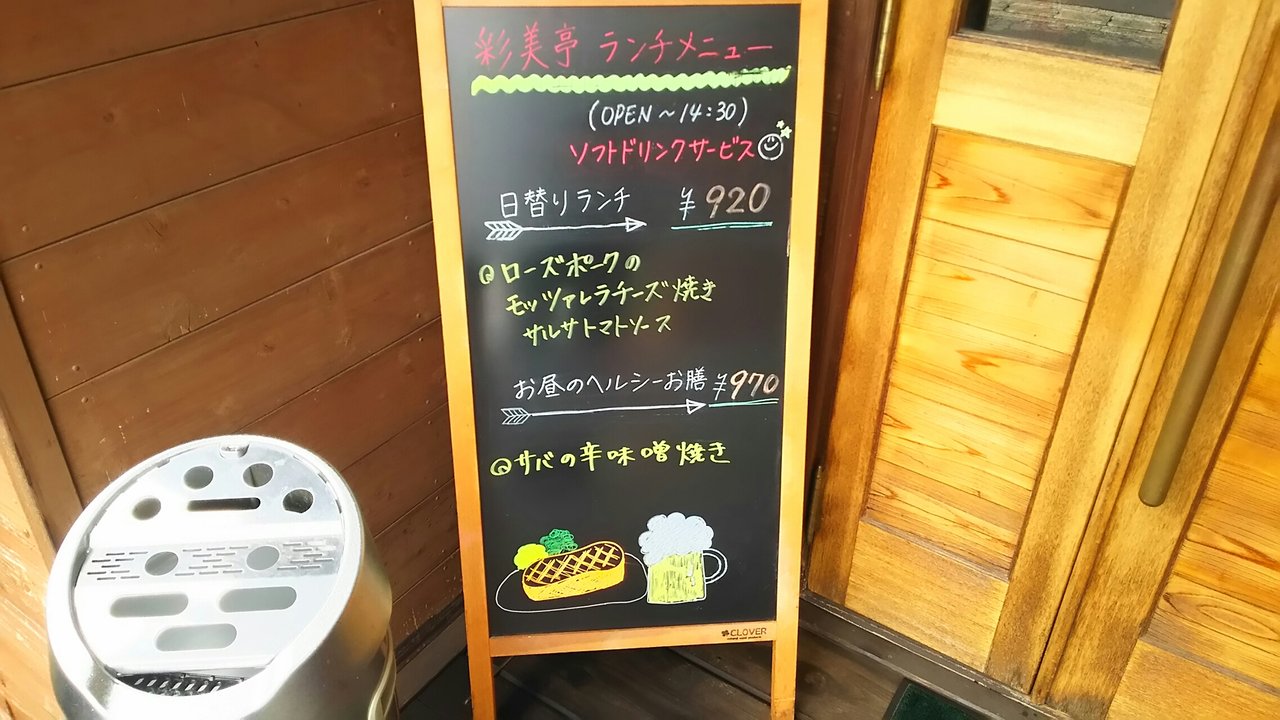 彩美亭 ランチメニュー
(OPEN～14:30)
ソフトドリンクサービス
日替りランチ ¥920
ローズポークの
モッツァレラチーズ焼き
サルサトマトソース
お昼のヘルシーお膳 ¥970
サバの辛味噌焼き
CLOVER